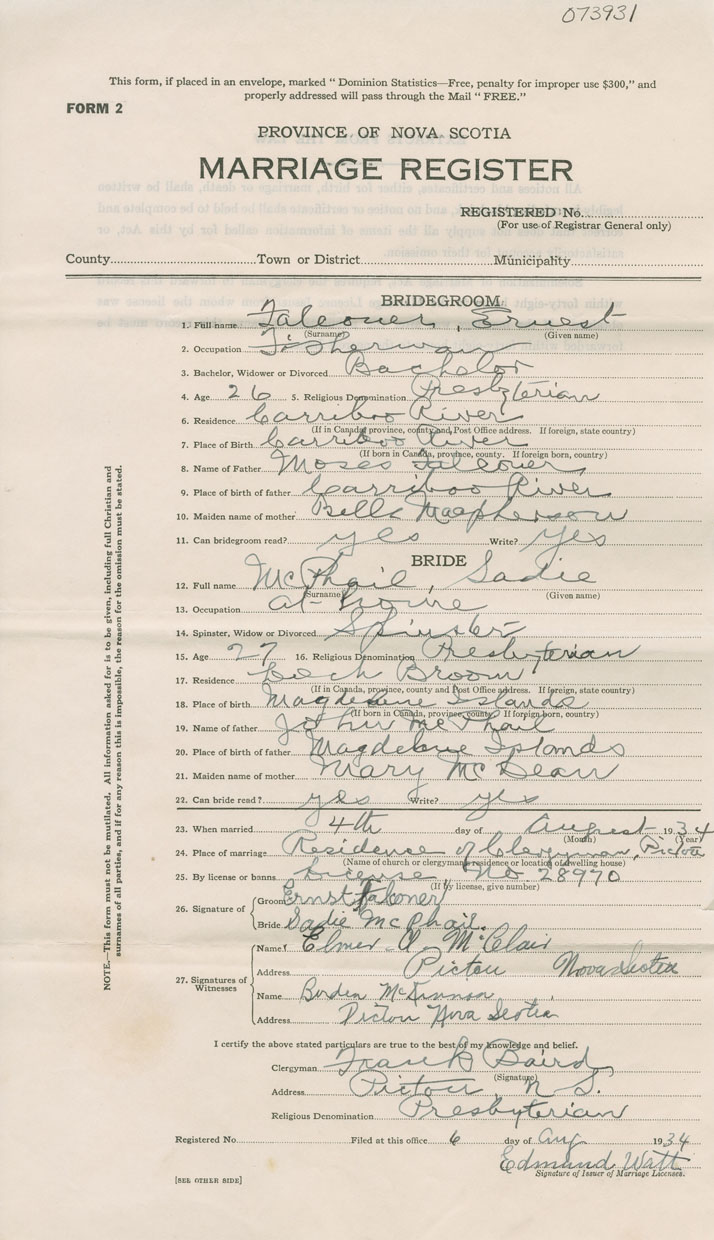 073931
This form, if placed in an envelope, marked " Dominion Statistics—Free, penalty for improper use $300," and
properly addressed will pass through the Mail " FREE."
FORM 2
PROVINCE OF NOVA SCOTIA
MARRIAGE REGISTER
REGISTERED No.
(For use of Registrar General only)
County Town or District Municipality
BRIDEGROOM
1. Full name Falconer, Ernest
(Surname) (Given name)
2. Occupation Fisherman
3. Bachelor, Widower or Divorced Bachelor
4. Age 26 5. Religious Denomination Presbyterian
6. Residence Carriboo River
(If in Canada, province, county and Post Office address. If foreign, state country)
7. Place of Birth Carriboo River
(If born in Canada, province, county. If foreign born, country)
8. Name of Father Moses Falconer
9. Place of birth of father Carriboo River
10. Maiden name of mother Bella Macpherson
11. Can bridegroom read? yes Write? yes
BRIDE
12. Full name McPhail, Sadie
(Surname) (Given name)
13. Occupation at-home
14. Spinster, Widow or Divorced Spinster
15. Age 27 16. Religious Denomination Presbyterian
17. Residence Loch Broom
(If in Canada, province, county and Post Office address. If foreign, state country)
18. Place of birth Magdelene Islands
(If born in Canada, province, county. If foreign born, country)
19. Name of father John McPhail
20. Place of birth of father Magdelene Islands
21. Maiden name of mother Mary McLean
22. Can bride read? yes Write? yes
23. When married 4th day of August 1934
(Month) (Year)
24. Place of marriage Residence of Clergyman, Pictou
(Name of church or clergyman's residence or location of dwelling house)
25. By license or banns License No. 28970
(If by license, give number)
26. Signature of Groom Ernst Falconer
Bride Sadie McPhail.
27. Signatures of Witnesses
Name Elmer A. McClair
Address Pictou Nova Scotia
Name Borden McKinnon
Address Pictou Nova Scotia
I certify the above stated particulars are true to the best of my knowledge and belief.
Clergyman Frank Baird
(Signature)
Address Pictou, N S.
Religious Denomination Presbyterian
Registered No. Filed at this office 6 day of Aug 1934
Edmund Watt
Signature of Issuer of Marriage Licenses.
[SEE OTHER SIDE]
NOTE.—This form must not be mutilated. All information asked for is to be given, including full Christian and
surnames of all parties, and if for any reason this is impossible, the reason for the omission must be stated.